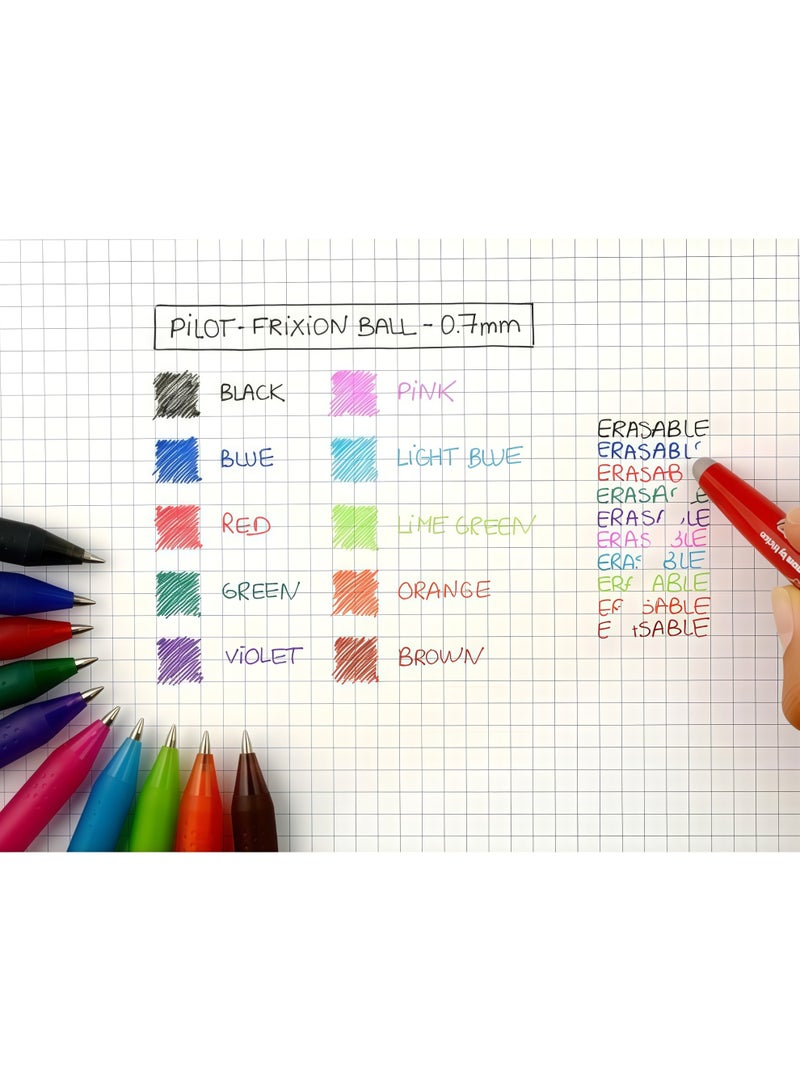 PiLOT - FRiXiON BALL - 0.7mm
BLACK
PiNK
BLUE
LiGHT BLUE
RED
LiME GREEN
GREEN
ORANGE
ViOLET
BROWN
ERASABLE
ERASABL
ERASAB
ERASA E
ERAS LE
ERAS BLE
ERA BLE
ER ABLE
E SABLE
E SABLE